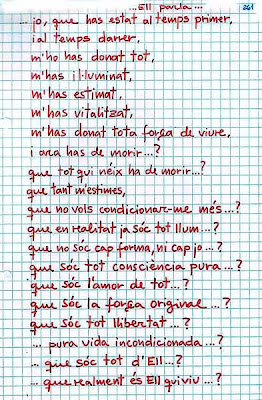 ...Ell parla...
261
... jo, que has estat al temps primer,
i al temps darrer,
m'ho has donat tot,
m'has il·luminat,
m'has estimat,
m'has vitalitzat,
m'has donat tota força de viure,
i ara has de morir...?
que tot qui neix ha de morir...?
que tant m'estimes,
que no vols condicionar-me més...?
que en realitat ja sóc tot llum...?
que no sóc cap forma, ni cap jo...?
que sóc tot consciència pura...?
que sóc l'amor de tot...?
que sóc la força original...?
que sóc tot llibertat...?
... pura vida incondicionada...?
... que sóc tot d'Ell...?
... que realment és Ell qui viu...?